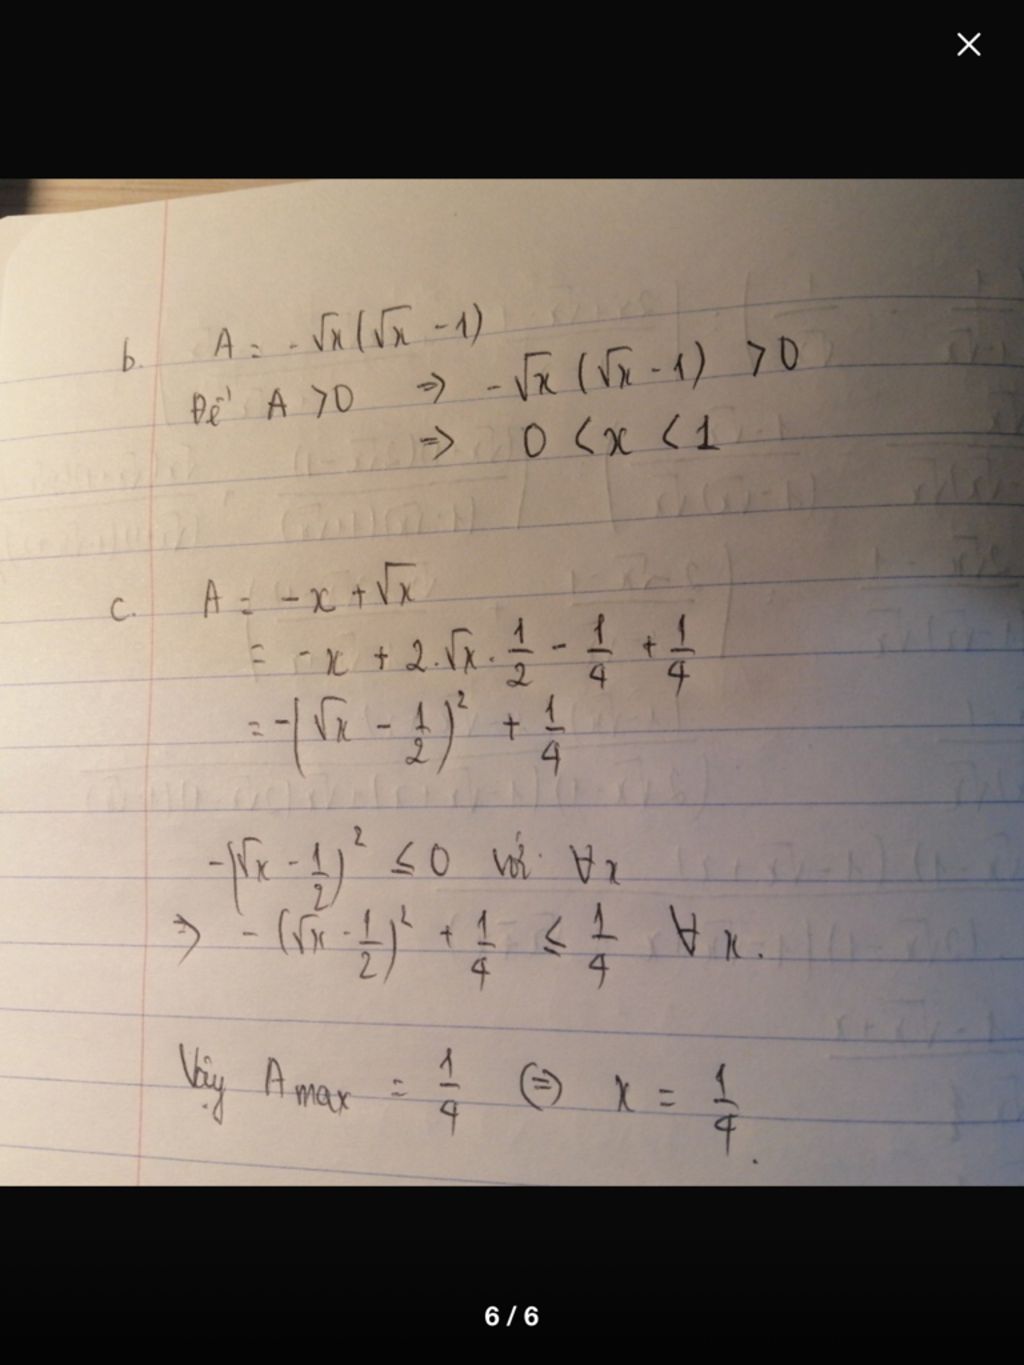 b. A = -√x(√x - 1)
Để A > 0 ⇒ -√x (√x - 1) > 0
⇒ 0 < x < 1
c. A = -x + √x
= -x + 2.√x.1/2 - 1/4 + 1/4
= -(√x - 1/2)² + 1/4
-(√x - 1/2)² ≤ 0 với ∀x
⇒ -(√x - 1/2)² + 1/4 ≤ 1/4 ∀x.
Vậy Amax = 1/4 (=) x = 1/4.
6 / 6